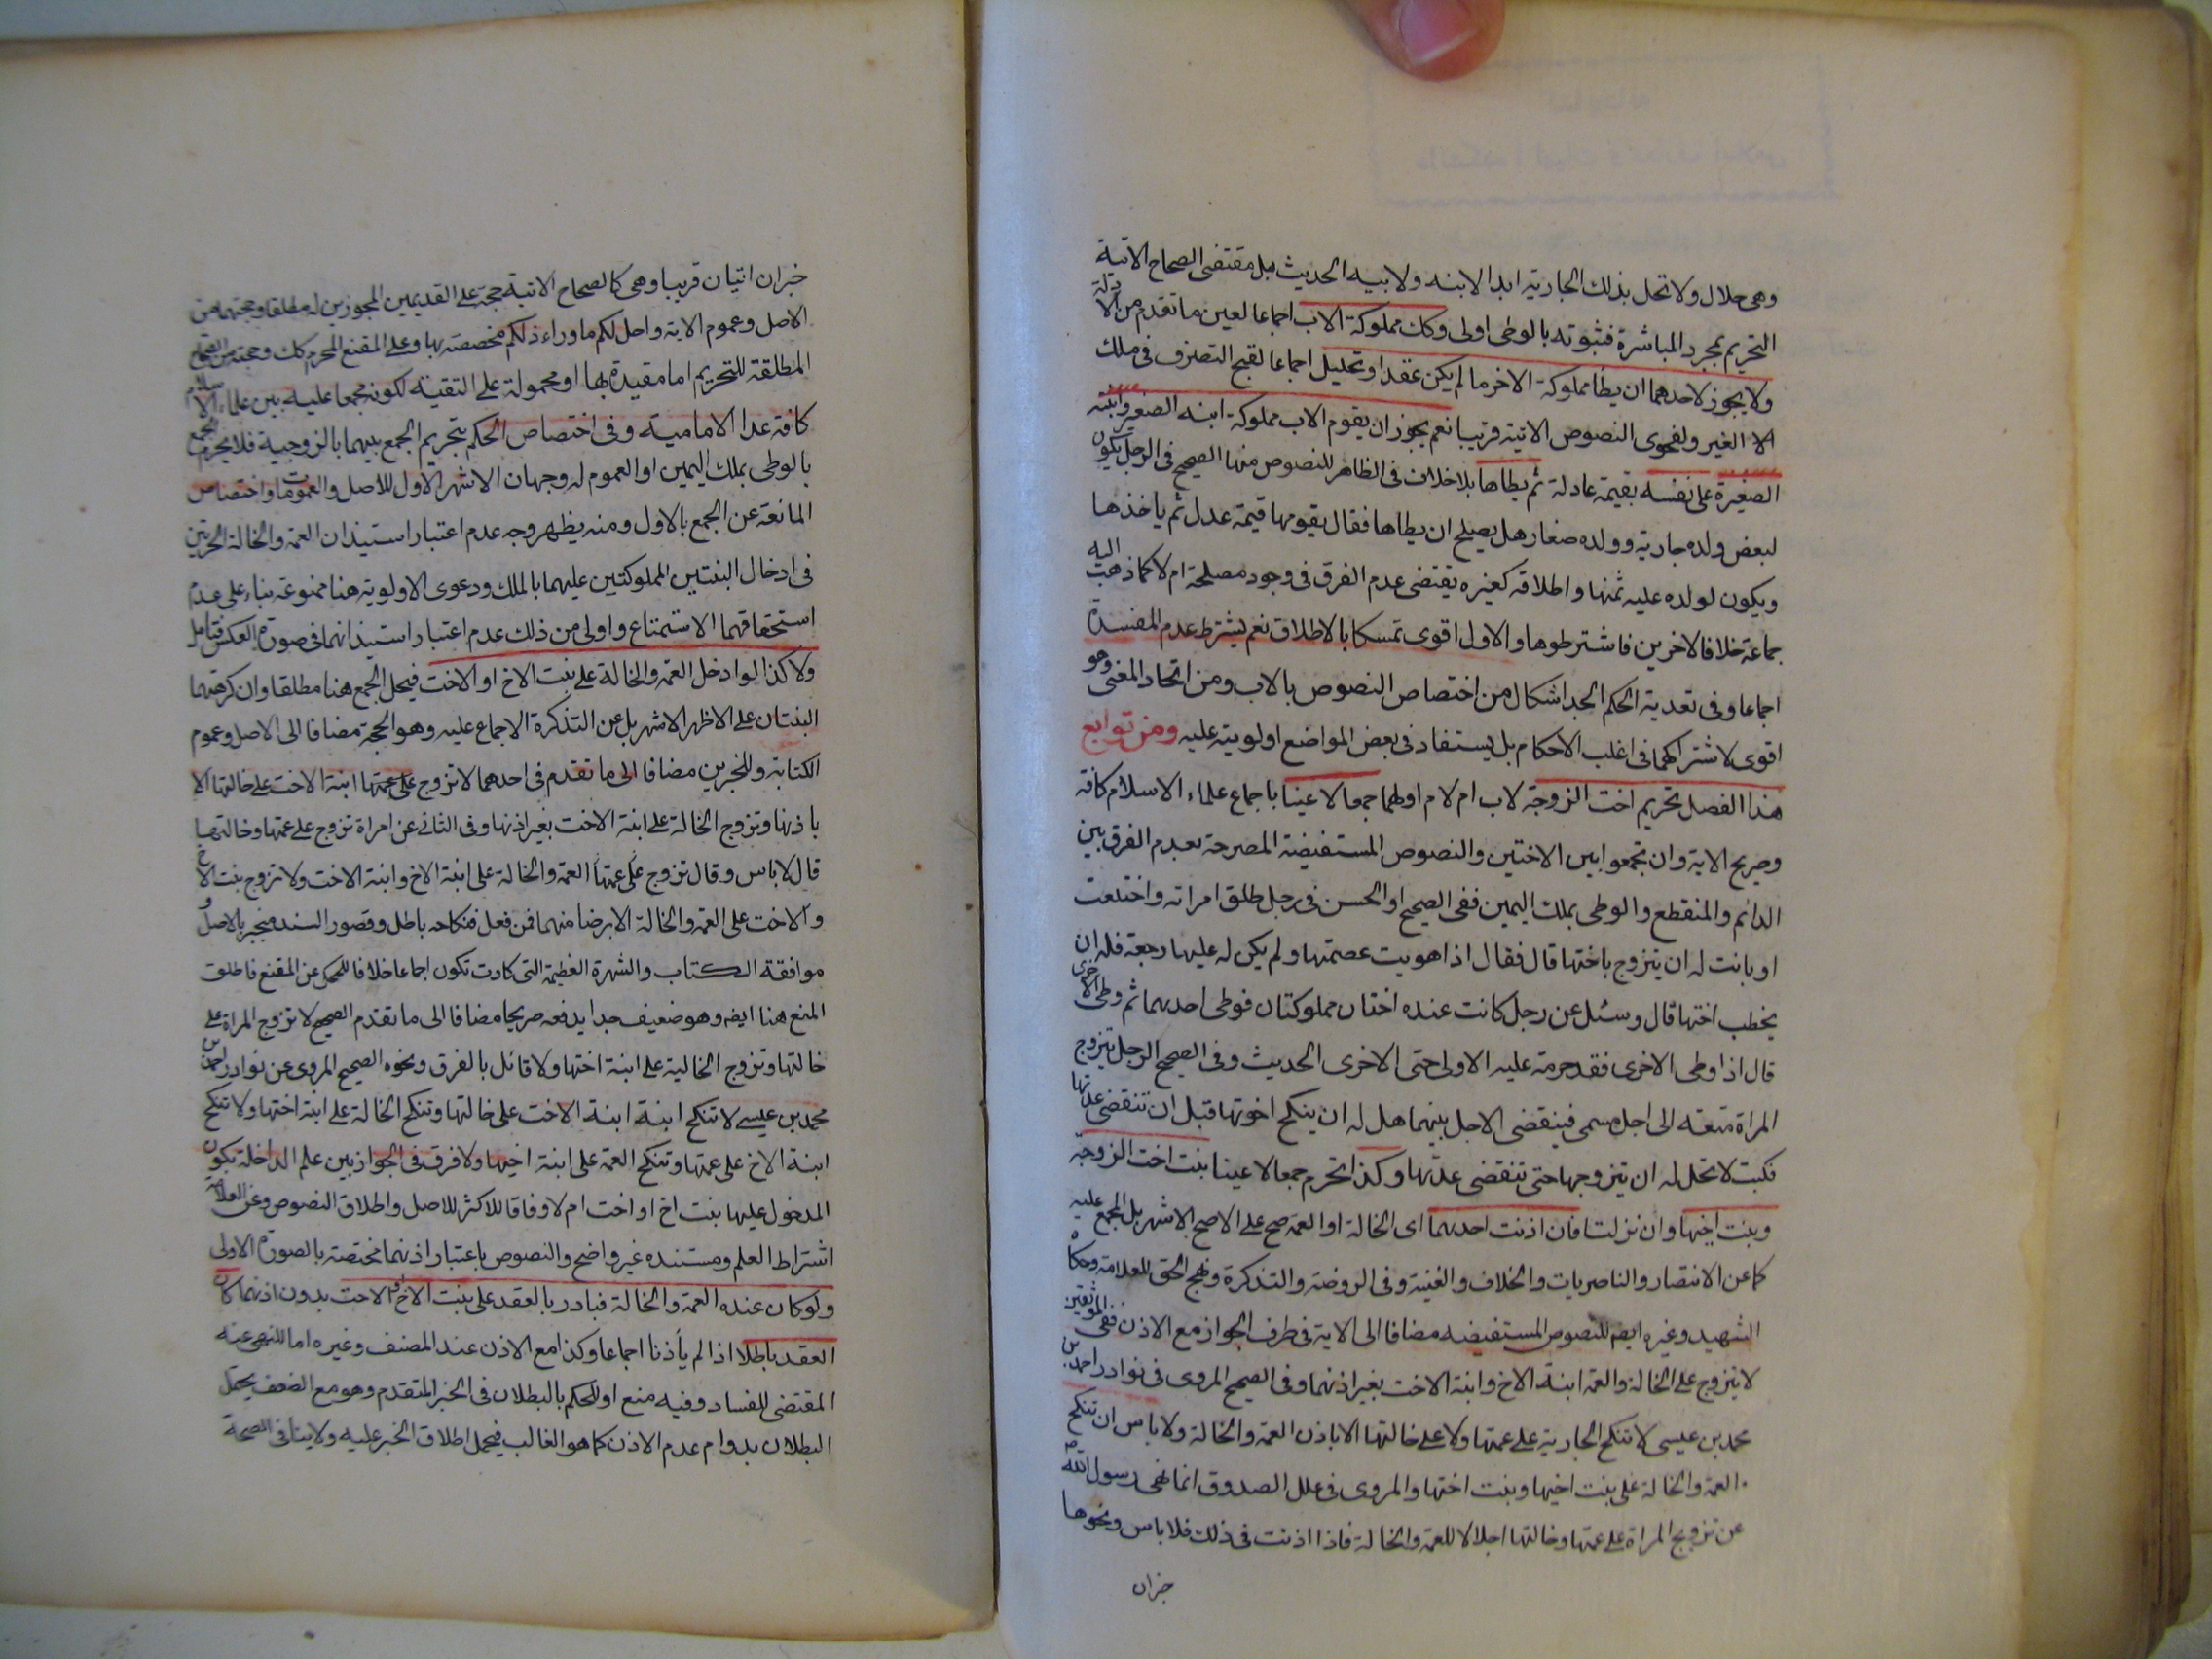 وهى حلال ولا تحل بذلك الجارية ابدا لابنه ولا بيه الحديث بل مقتضى الصحاح الاتية
التحريم بمجرد المباشرة فثبوته بالوطى اولى وكك مملوكة الاب اجماعا لعين ما تقدم من الادلة
ولا يجوز لاحدهما ان يطا مملوكة الاخر ما لم يكن عقد او تحليل اجماعا لقبح التصرف فى ملك
الا الغير ولفحوى النصوص الاتية قريبا نعم يجوز ان يقوم الاب مملوكة ابنه الصغير وابنته
الصغيرة على نفسه بقيمة عادلة ثم يطاها بلا خلاف فى الظاهر للنصوص منها الصحيح فى الرجل يكون
لبعض ولده جارية وولده صغار هل يصلح ان يطاها فقال يقومها قيمة عدل ثم ياخذها
ويكون لولده عليه ثمنها واطلاقه كغيره يقتضى عدم الفرق فى وجود مصلحة ام لا كما ذهبت اليه
جماعة خلافا لاخرين فاشترطوها والاول اقوى تمسكا بالاطلاق نعم يشترط عدم المفسدة
اجماعا وفى تعدية الحكم الجد اشكال من اختصاص النصوص بالاب ومن اتحاد المعنى وهو
اقوى لاشتراكهما فى اغلب الاحكام بل يستفاد فى بعض المواضع اولويته عليه ومن توابع
هذا الفصل تحريم اخت الزوجة لاب ام لام او لهما جمعا لا عينا باجماع علماء الاسلام كافة
وصريح الاية وان تجمعوا بين الاختين والنصوص المستفيضة المصرحة بعدم الفرق بين
الدائم والمنقطع والوطى بملك اليمين ففى الصحيح او الحسن فى رجل طلق امراته واختلعت
او بانت له ان يتزوج باختها قال فقال اذا هويت عصمتها ولم يكن له عليها رجعة فله ان
يخطب اختها قال وسئل عن رجل كانت عنده اختان مملوكتان فوطى احديهما ثم وطى الاخرى
قال اذا وطى الاخرى فقد حرمة عليه الاولى حتى الاخرى الحديث وفى الصحيح الرجل يتزوج
المراة متعة الى اجل مسمى فينقضى الاجل بينهما هل له ان ينكح اختها قبل ان تنقضى عدتها
فكتب لا تحل له ان يتزوجها حتى تنقضى عدتها وكذا تحرم جمعا لا عينا بنت اخت الزوجة
وبنت اخيها وان نزلتا فان اذنت احديهما اى الخالة او العمة صح على الاصح الاشهر بل المجمع عليه
كما عن الانتصار والناصريات والخلاف والغنية وفى الروضة والتذكرة ونهج الحق للعلامة وحكاه
الشهيد وغيره ايضا للنصوص المستفيضه مضافا الى الاية فى طرف الجواز مع الاذن ففى الموثقين
لا يتزوج على الخالة والعمة ابنة الاخ وابنة الاخت بغير اذنهما وفى الصحيح المروى فى نوادر احمد بن
محمد بن عيسى لا تنكح الجارية على عمتها ولا على خالتها الا باذن العمة والخالة ولا باس ان تنكح
العمة والخالة على بنت اخيها وبنت اختها والمروى فى علل الصدوق انما نهى رسول الله ص
عن تزويج المراة على عمتها وخالتها اجلالا للعمة والخالة فاذا اذنت فى ذلك فلا باس ونحوها
خبران
خبران اتيان قريبا وهى كالصحاح الاتية حجة على القديمين المجوزين له مطلقا وحجتهما من
الاصل وعموم الاية واحل لكم ما وراء ذلكم مخصصة بها وعلى المقنع المحرم كك وحجته من الصحاح
المطلقة للتحريم اما مقيدة بها او محمولة على التقية لكونه مجمعا عليه بين علماء الاسلام
كافة عدا الامامية وفى اختصاص الحكم بتحريم الجمع بينهما بالزوجية فلا يحرم الجمع
بالوطى بملك اليمين او العموم له وجهان الاشهر الاول للاصل والعمومات واختصاص
المانعة عن الجمع بالاول ومنه يظهر وجه عدم اعتبار استيذان العمة والخالة الحرتين
فى ادخال البنتين المملوكتين عليهما بالملك ودعوى الاولوية هنا ممنوعة بناء على عدم
استحقاقهما الاستمتاع واولى من ذلك عدم اعتبار استيذانهما فى صورة العكس فتامل
ولا كذا لو ادخل العمة والخالة على بنت الاخ او الاخت فيحل الجمع هنا مطلقا وان كرهتهما
البنتان على الاظهر الاشهر بل عن التذكرة الاجماع عليه وهو الحجة مضافا الى الاصل وعموم
الكتابة وللخبرين مضافا الى ما تقدم فى احدهما لا تزوج على عمتها ابنة الاخت على خالتها الا
باذنها وتزوج الخالة على ابنة الاخت بغير اذنها وفى الثانى عن امراة تزوج على عمتها وخالتها
قال لا باس وقال تزوج على عمتها العمة والخالة على ابنة الاخ وابنة الاخت ولا تزوج بنت الاخ
والاخت على العمة والخالة الا برضا منهما فمن فعل فنكاحه باطل وقصور السند منجبر بالاصل و
موافقة الكتاب والشهرة العظيمة التى كادت تكون اجماعا خلافا للمحكى عن المقنع فاطلق
المنع هنا ايضا وهو ضعيف جدا يدفعه صريحا مضافا الى ما تقدم الصحيح لا تزوج المراة على
خالتها وتزوج الخالية على ابنة اختها ولا قائل بالفرق ونحوه الصحيح المروى عن نوادر احمد بن
محمد بن عيسى لا تنكح ابنة ابنة الاخت على خالتها وتنكح الخالة على ابنة اختها ولا تنكح
ابنة الاخ على عمتها وتنكح العمة على ابنة اخيها ولا فرق فى الجواز بين علم الداخلة بكون
المدخول عليها بنت اخ او اخت ام لا وفاقا للاكثر للاصل واطلاق النصوص وعن العلامة
اشتراط العلم ومستنده غير واضح والنصوص باعتبار اذنهما مختصة بالصورة الاولى
ولو كان عنده العمة والخالة فبادر بالعقد على بنت الاخ او الاخت بدون اذنهما كان
العقد باطلا اذا لم يأذنا اجماعا وكذا مع الاذن عند المصنف وغيره اما للنهى عنه
المقتضى للفساد وفيه منع او للحكم بالبطلان فى الخبر المتقدم وهو مع الضعف يحتمل
البطلان بدوام عدم الاذن كما هو الغالب فيحمل اطلاق الخبر عليه ولا ينافى الصحة